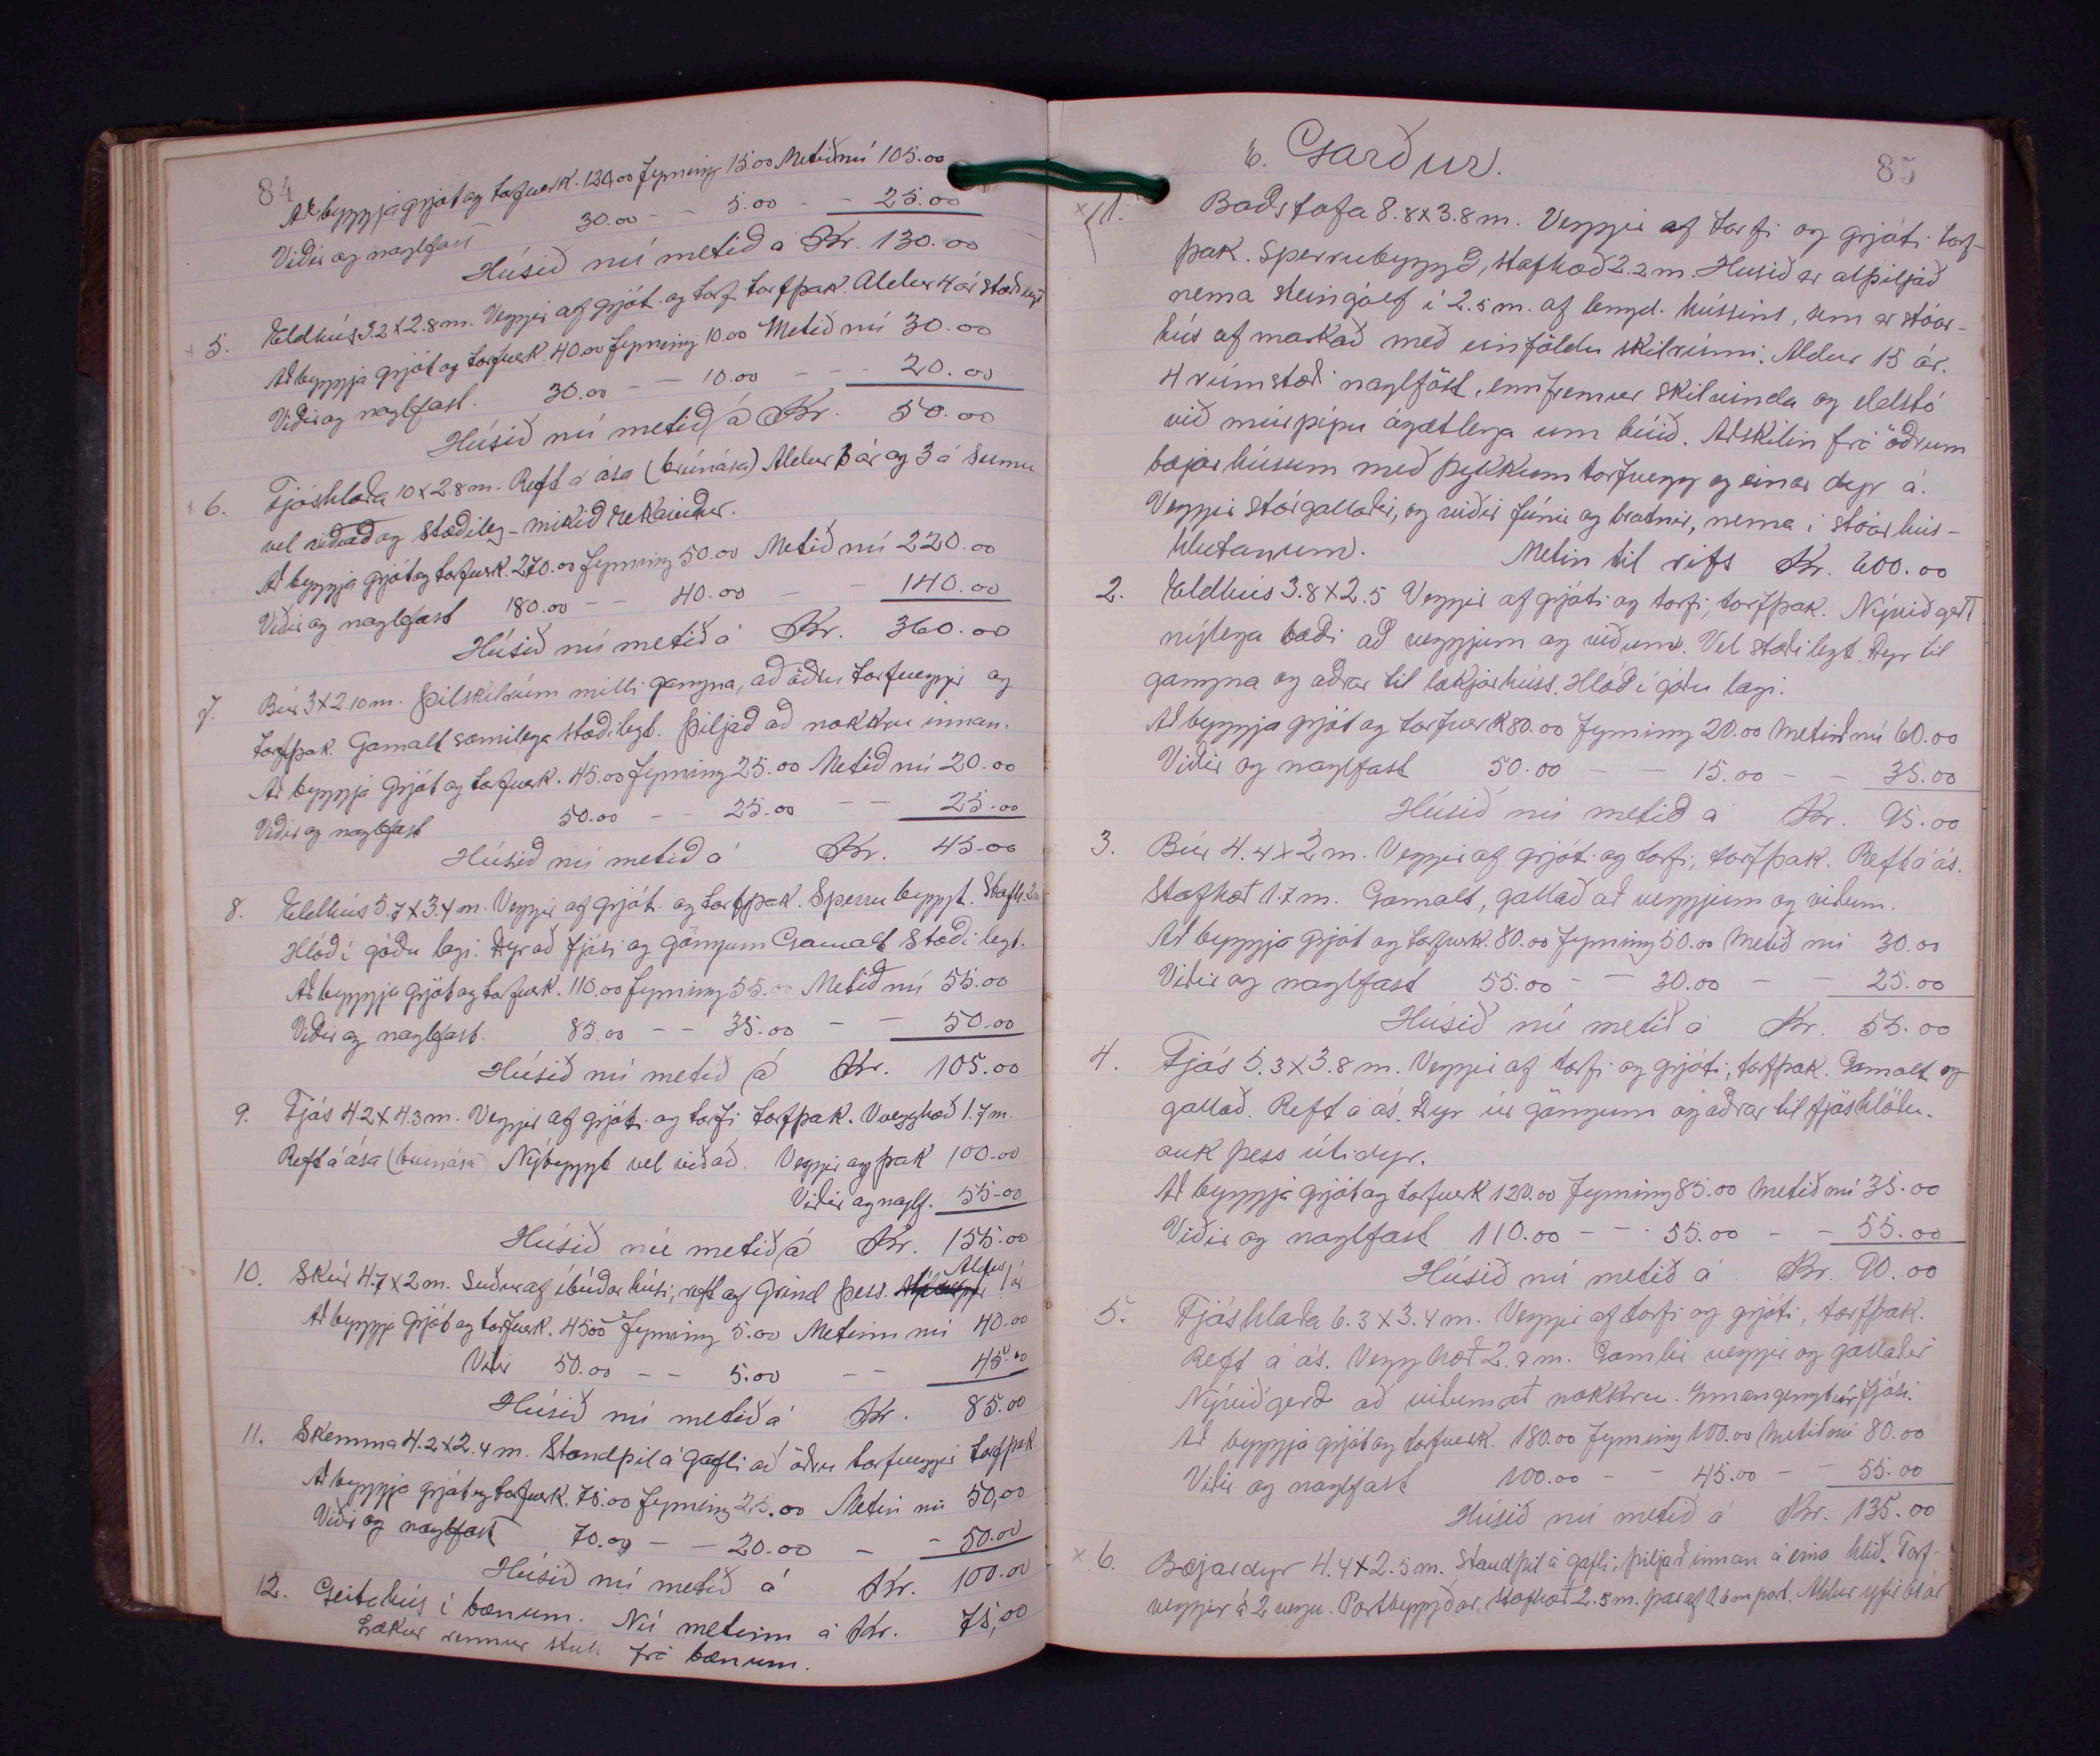 84
Að byggja grjót og torfverk. 120.00 Fyrning 15.00 Metið nú 105.00
Viðir og naglfast 30.00 - - 5.00 - - 25.00
Húsið nú metið á Kr. 130.00
5. Eldhús 3.2 x 2.8 m. Veggir af grjót. og torf. torfþak. Aldur 4 ár stæðilegt
Að byggja grjót og torfverk 40.00 Fyrning 10.00 Metið nú 30.00
Viðir og naglfast. 30.00 - - 10.00 - - 20.00
Húsið nú metið á Kr. 50.00
6. Fjóshlaða 10 x 2.8 m. Reft á ása (brúnása) Aldur ár og 3 á sumu
vel viðað og stæðileg - mikið rekaviður.
Að byggja grjót og torfverk. 270.00 Fyrning 50.00 Metið nú 220.00
Viðir og naglfast 180.00 - - 40.00 - 140.00
Húsið nú metið á Kr. 360.00
7. Búr 3 x 2.10 m. Þilskilrúm milli gangna, að öðru torfveggir og
torfþak. Gamalt sæmilega stæðilegt. Þiljað að nokkru innan.
Að byggja grjót og torfverk. 45.00 Fyrning 25.00 Metið nú 20.00
Viðir og naglfast 50.00 - - 25.00 - - 25.00
Húsið nú metið á Kr. 45.00
8. Eldhús 5.7 x 3.4 m. Veggir af grjót. og torfþak. Sperru byggt. Stafh.
Hlóð í góðu lagi. Dyr að fjósi og göngum Gamalt stæðilegt.
Að byggja grjót og torfverk. 110.00 Fyrning 55.00 Metið nú 55.00
Viðir og naglfast. 85.00 - - 35.00 - - 50.00
Húsið nú metið á Kr. 105.00
9. Fjós 4.2 x 4.3 m. Veggir af grjót. og torfi torfþak. Vegghæð 1.7 m.
Reft á ása (brúnása) Nýbyggt vel viðað. Veggir og þak 100.00
Viðir og naglf. 55.00
Húsið nú metið á Kr. 155.00
10. Skúr 4.7 x 2 m. Suður af íbúðarhúsi, reft af grind þess. Aldur 1 ár
Að byggja grjót og torfverk. 45.00 Fyrning 5.00 Metinn nú 40.00
Viðir 50.00 - - 5.00 - - 45.00
Húsið nú metið á Kr. 85.00
11. Skemma 4.2 x 2.4 m. Standþil á gafli að öðru torfveggir torfþak
Að byggja grjót og torfverk. 75.00 Fyrning 25.00 Metin nú 50,00
Viðir og naglfast 70.00 - - 20.00 - - 50.00
Húsið nú metið á Kr. 100.00
12. Geitahús í bænum. Nú metinn á Kr. 75,00
Lækur rennur frá bænum.
85
6. Garður.
x 1. Baðstofa 8.8 x 3.8 m. Veggir af torfi og grjóti torf-
þak. Sperrubyggð, stafhæð 2.2 m. Húsið er alþiljað
nema steingólf í 2.5 m. af lengd. hússins, sem er stóar-
hús afmarkað með einföldu skilrúmi. Aldur 15 ár.
4 rúmstæði naglföst, ennfremur skilvinda og eldstó
við múrpípu ágætlega um búið. Aðskilin frá öðrum
bæjarhúsum með þykkum torfvegg og einar dyr á.
Veggir stórgallaðir, og viðir fúnir og brotnir, nema í stóarhús-
hlutanum. Metin til rifs Kr. 600.00
2. Eldhús 3.8 x 2.5 Veggir af grjóti og torfi, torfþak. Nýviðgert
nýlega bæði að veggjum og viðum. Vel stæðilegt. Dyr til
gangna og aðrar til lækjarhúss. Hlóð í góðu lagi.
Að byggja grjót og torfverk 80.00 Fyrning 20.00 Metið nú 60.00
Viðir og naglfast 50.00 - - 15.00 - - 35.00
Húsið nú metið á Kr. 95.00
3. Búr 4.4 x 2 m. Veggir af grjóti og torfi, torfþak. Reft á ás.
Stafhæð 1.7 m. Gamalt, gallað að veggjum og viðum.
Að byggja grjót og torfverk. 80.00 Fyrning 50.00 Metið nú 30.00
Viðir og naglfast 55.00 - - 30.00 - - 25.00
Húsið nú metið á Kr. 55.00
4. Fjós 5.3 x 3.8 m. Veggir af torfi og grjóti, torfþak. Gamalt og
gallað. Reft á ás. Dyr úr göngum og aðrar til fjóshlöðu.
auk þess útidyr.
Að byggja grjót og torfverk 120.00 Fyrning 85.00 Metið nú 35.00
Viðir og naglfast 110.00 - - 55.00 - - 55.00
Húsið nú metið á Kr. 90.00
5. Fjóshlaða 6.3 x 3.4 m. Veggir af torfi og grjóti, torfþak.
Reft á ás. Vegghæð 2.2 m. Gamlir veggir og gallaðir
Nýviðgerð að viðum að nokkru. Innangengt úr fjósi.
Að byggja grjót og torfverk. 180.00 Fyrning 100.00 Metið nú 80.00
Viðir og naglfast 100.00 - - 45.00 - - 55.00
Húsið nú metið á Kr. 135.00
x 6. Bæjardyr 4.4 x 2.5 m. Standþil á gafli, þiljað innan á eina hlið. Torf-
veggir á 2 vegu. Portbyggðar, stafhæð 2.5 m. þar af 0.6 m port. Aldur yfir ár